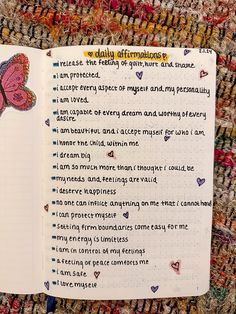 daily affirmations
release the feeling of guilt, hurt and shame
i am protected
i accept every aspect of myself and my personality
i am loved
i am capable of every dream and worthy of every
desire
i am beautiful and i accept myself for who i am
i honor the child within me
i dream big
i am so much more than i thought i could be
my needs and feelings are valid
i deserve happiness
no one can inflict anything on me that i cannot handle
i can protect myself
setting firm boundaries come easy for me
my energy is limitless
i am in control of my feelings
a feeling of peace comforts me
i am safe
i love myself